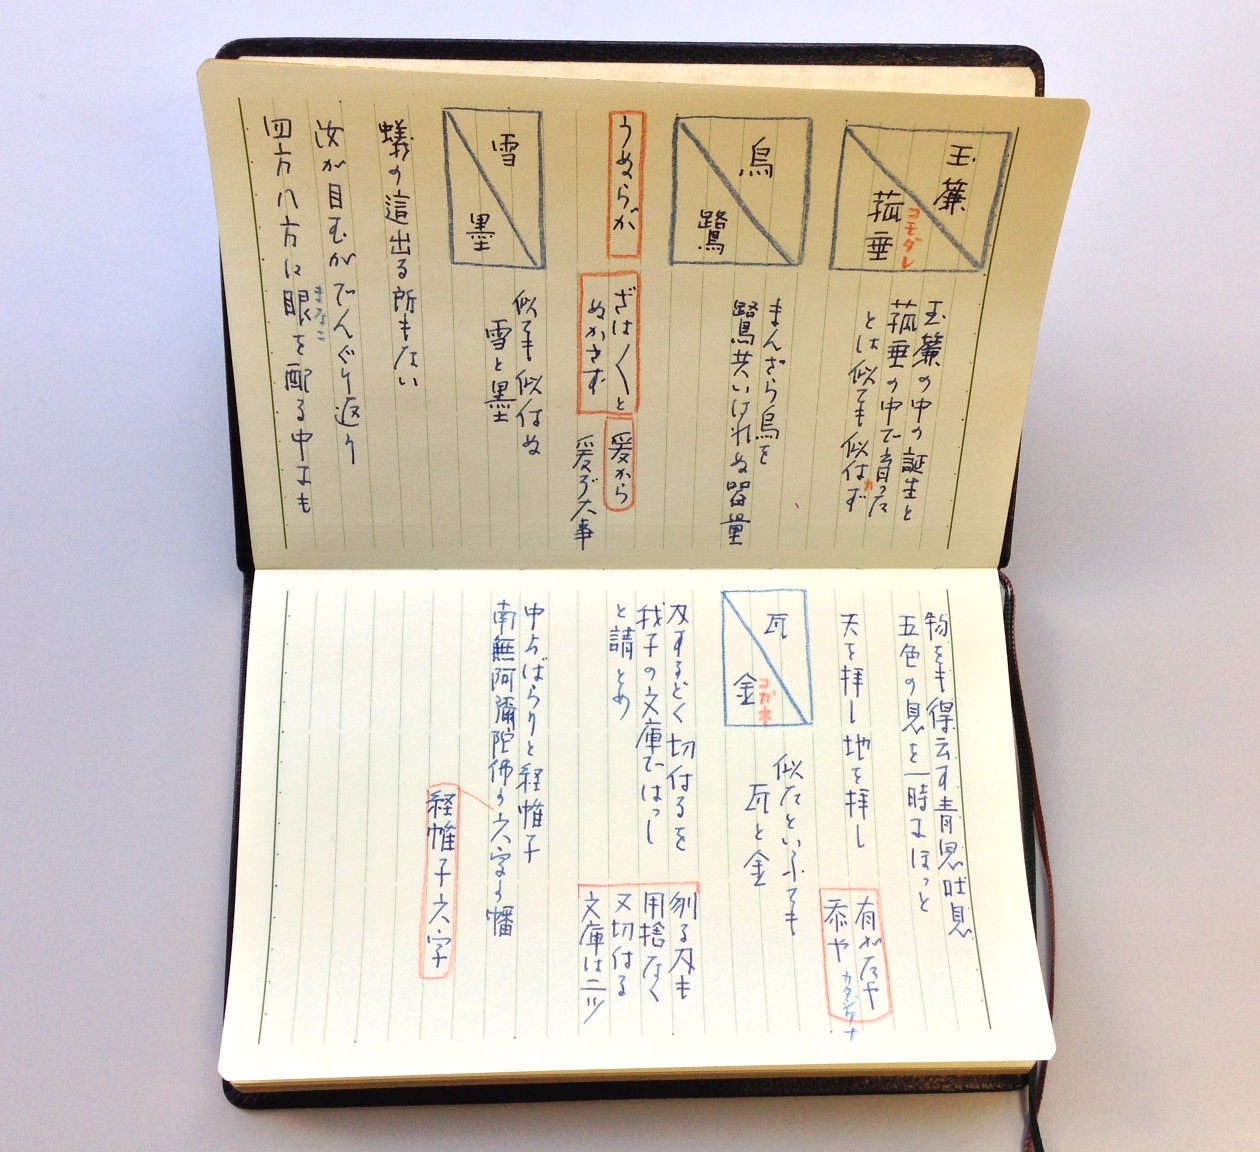 玉簾
菰垂
コモダレ
玉簾の中の誕生と
菰垂の中で育った
とは似ても似はず
カ
烏
鷺
まんざら烏を
鷺共いはれぬ器量
うぬらが
ざは〱と
ぬかさず
爰から
爰が大事
雪
墨
似ても似はぬ
雪と墨
蟻の這出る所もない
汝が目玉がでんぐり返り
四方八方に眼を配る中にも
まなこ
物をも得云す青息吐息
五色の息を一時にほっと
天を拝し地を拝し
有がたや
忝や
カタジケナ
瓦
金
コガネ
似たといふても
瓦と金
刃するどく切付るを
我子の文庫ではっし
と請とめ
剃る刃も
用捨なく
又切付る
文庫は二ツ
中よりばらりと経帷子
南無阿彌陀佛の六字の幡
経帷子六字